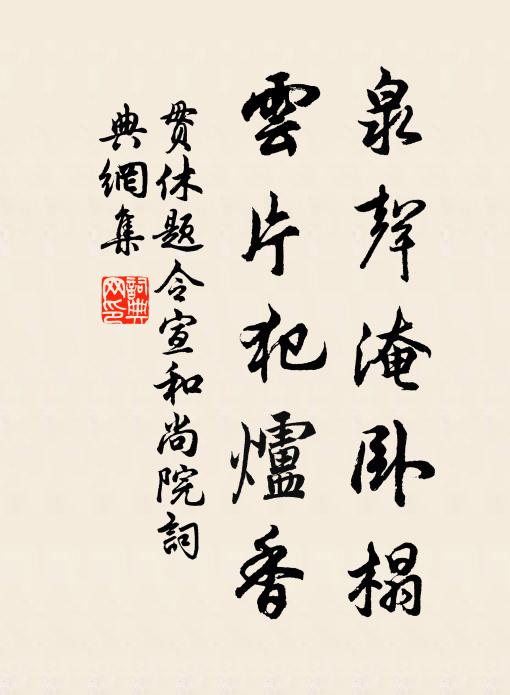 泉聲淹臥榻
雲片犯爐香
贯休题令宣和尚院詞
典網集
詞典网印